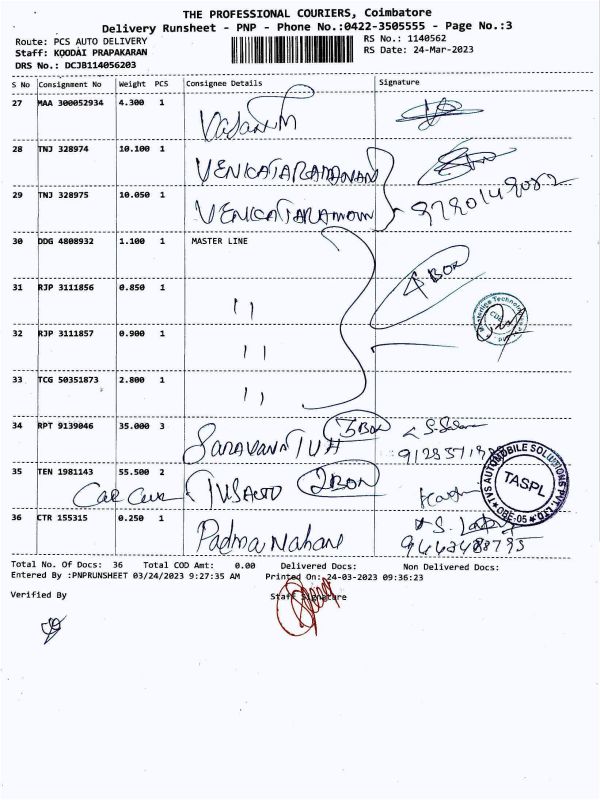 THE PROFESSIONAL COURIERS, Coimbatore
Delivery Runsheet - PNP - Phone No.:0422-3505555 - Page No.:3
Route: PCS AUTO DELIVERY
RS No.: 1140562
Staff: KOODAI PRAPAKARAN
RS Date: 24-Mar-2023
DRS No.: DCJB114056203
S No Consignment No Weight PCS Consignee Details Signature
27 MAA 300052934 4.300 1 Vasanth
28 TNJ 328974 10.100 1 VENKATARAMANAN
29 TNJ 328975 10.050 1
30 DDG 4808932 1.100 1 MASTER LINE
4 BOX
31 RJP 3111856 0.850 1 11
32 RJP 3111857 0.900 1 11
33 TCG 50351873 2.800 1 11
34 RPT 9139046 35.000 3 Saravana TVH 3 BOX
35 TEN 1981143 55.500 2 TVS AUTO 2 BOX
Car Care
TVS AUTOMOBILE SOLUTIONS PVT. LTD.
TASPL
OBE-05
36 CTR 155315 0.250 1 Padma Nahar
Total No. Of Docs: 36 Total COD Amt: 0.00 Delivered Docs: Non Delivered Docs:
Entered By :PNPRUNSHEET 03/24/2023 9:27:35 AM Printed On: 24-03-2023 09:36:23
Verified By Staff Signature